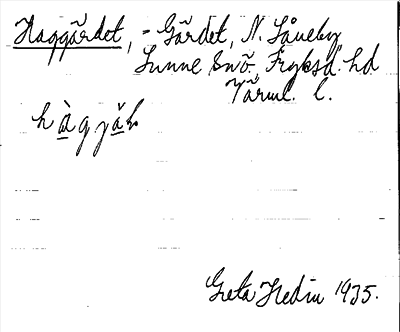 Haggärdet, - Gärdet, N. Låneby
Sunne sn, Fryksd. hd
Värml. l.
Greta Hedin 1935.